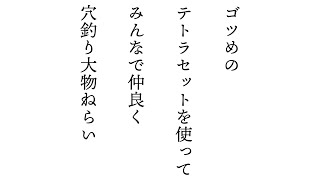 ゴツめの
テトラセットを使って
みんなで仲良く
穴釣り大物ねらい